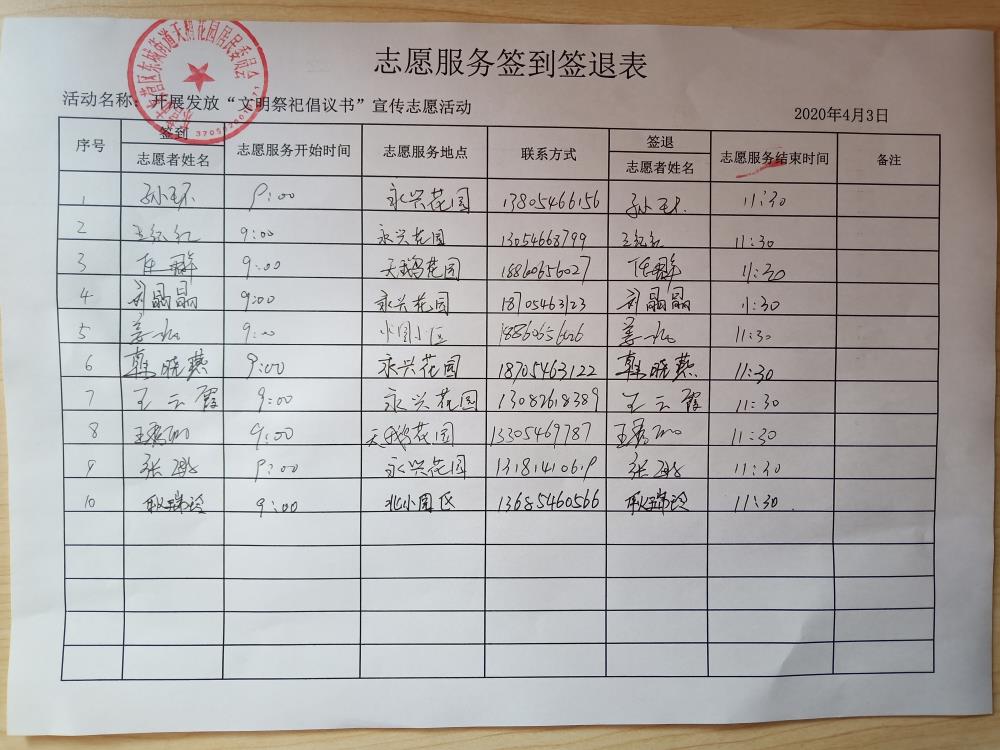 志愿服务签到签退表
活动名称：开展发放“文明祭祀倡议书”宣传志愿活动
2020年4月3日
序号 签到 志愿服务开始时间 志愿服务地点 联系方式 签退 志愿服务结束时间 备注
志愿者姓名 志愿者姓名
1 孙环 9:00 永兴花园 13805466156 孙环 11:30
2 王红红 9:00 永兴花园 13054668799 王红红 11:30
3 任群 9:00 天鹅花园 18860656027 任群 11:30
4 刘晶晶 9:00 永兴花园 18705463123 刘晶晶 11:30
5 姜 9:00 小区 姜 11:30
6 韩晓燕 9:00 永兴花园 18705463122 韩晓燕 11:30
7 王云霞 9:00 永兴花园 13082618389 王云霞 11:30
8 王 9:00 天鹅花园 13305469787 王 11:30
9 张 9:00 永兴花园 13181410619 张 11:30
10 耿瑞玲 9:00 北小园区 13685460566 耿瑞玲 11:30